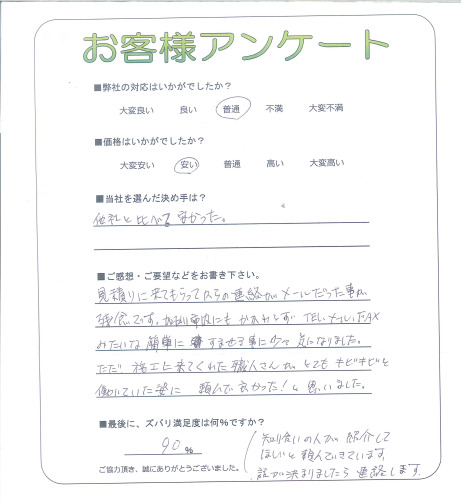 お客様アンケート
■弊社の対応はいかがでしたか？
大変良い 良い 普通 不満 大変不満
■価格はいかがでしたか？
大変安い 安い 普通 高い 大変高い
■当社を選んだ決め手は？
他社と比べる 安かった。
■ご感想・ご要望などをお書き下さい。
見積りに来てもらってからの連絡がメールだった事が
残念です。 にもかかわらず TEL メール FAX
みたいな 簡単に すませる事に少々 気になりました。
ただ 施工に来てくれた職人さんが とても キビキビと
働いていた姿に 頼んで良かった！と思いました。
■最後に、ズバリ満足度は何％ですか？
90 %
知り合いの人から 紹介して
ほしいと頼んできています
話が決まりましたら 連絡します。
ご協力頂き、誠にありがとうございました。